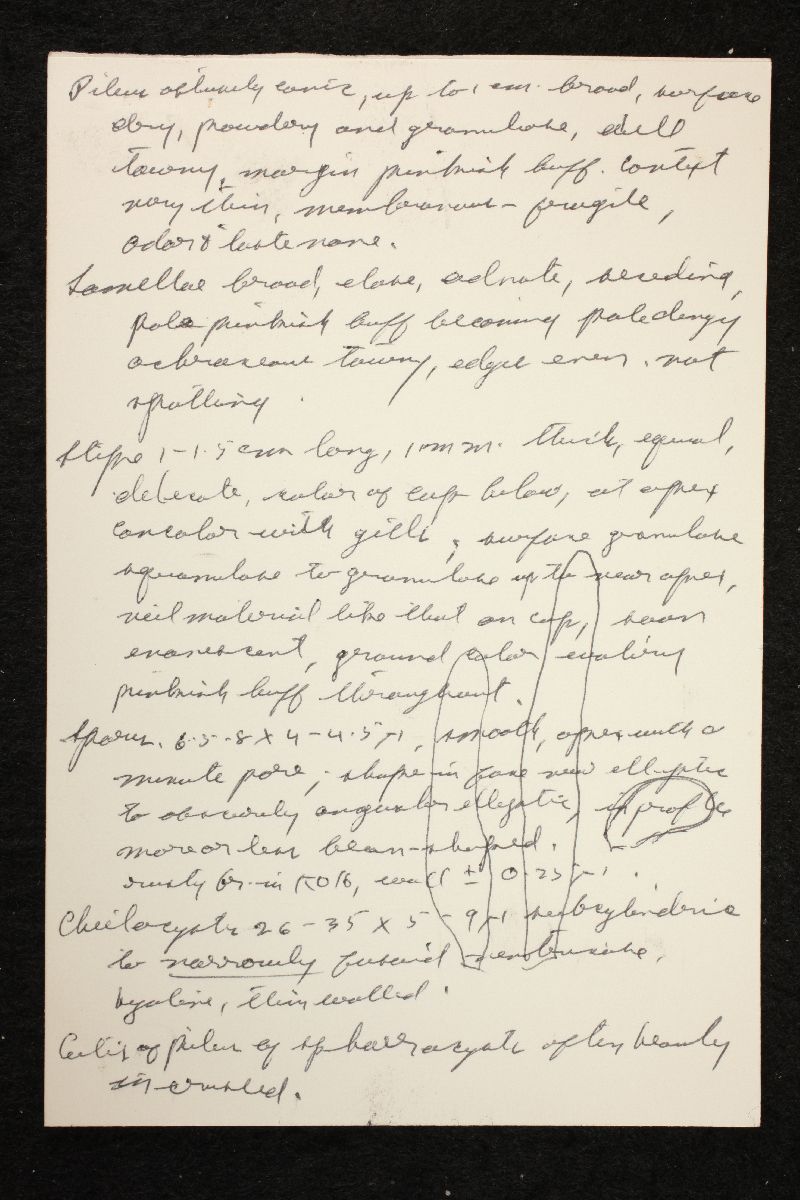 Pileus obtusely conic, up to 1 cm. broad, surface
dry, powdery and granulose, dull
tawny, margin pinkish buff. Context
very thin, membranous - fragile,
odor & taste none.
Lamellae broad, close, adnate, seceding,
pale pinkish buff becoming pale dingy
ochraceous tawny, edges even. not
spotting.
Stipe 1-1.5 cm long, 1 mm. thick, equal,
delicate, color of cap below, at apex
concolor with gills; surface granulose
squamulose to granulose up to near apex,
veil material like that on cap, soon
evanescent, ground color watery
pinkish buff throughout.
Spores. 6.5-8 x 4-4.5 µ, smooth, apex with a
minute pore; shape in face view elliptic
to obscurely angular elliptic, in profile
more or less bean-shaped.
rusty br. in KOH, wall ± 0.25 µ.
Cheilocysts 26-35 x 5-9 µ subcylindric
to narrowly fusoid ventricose,
hyaline, thin walled.
Cutis of pileus of sphaerocysts often heavily
incrusted.